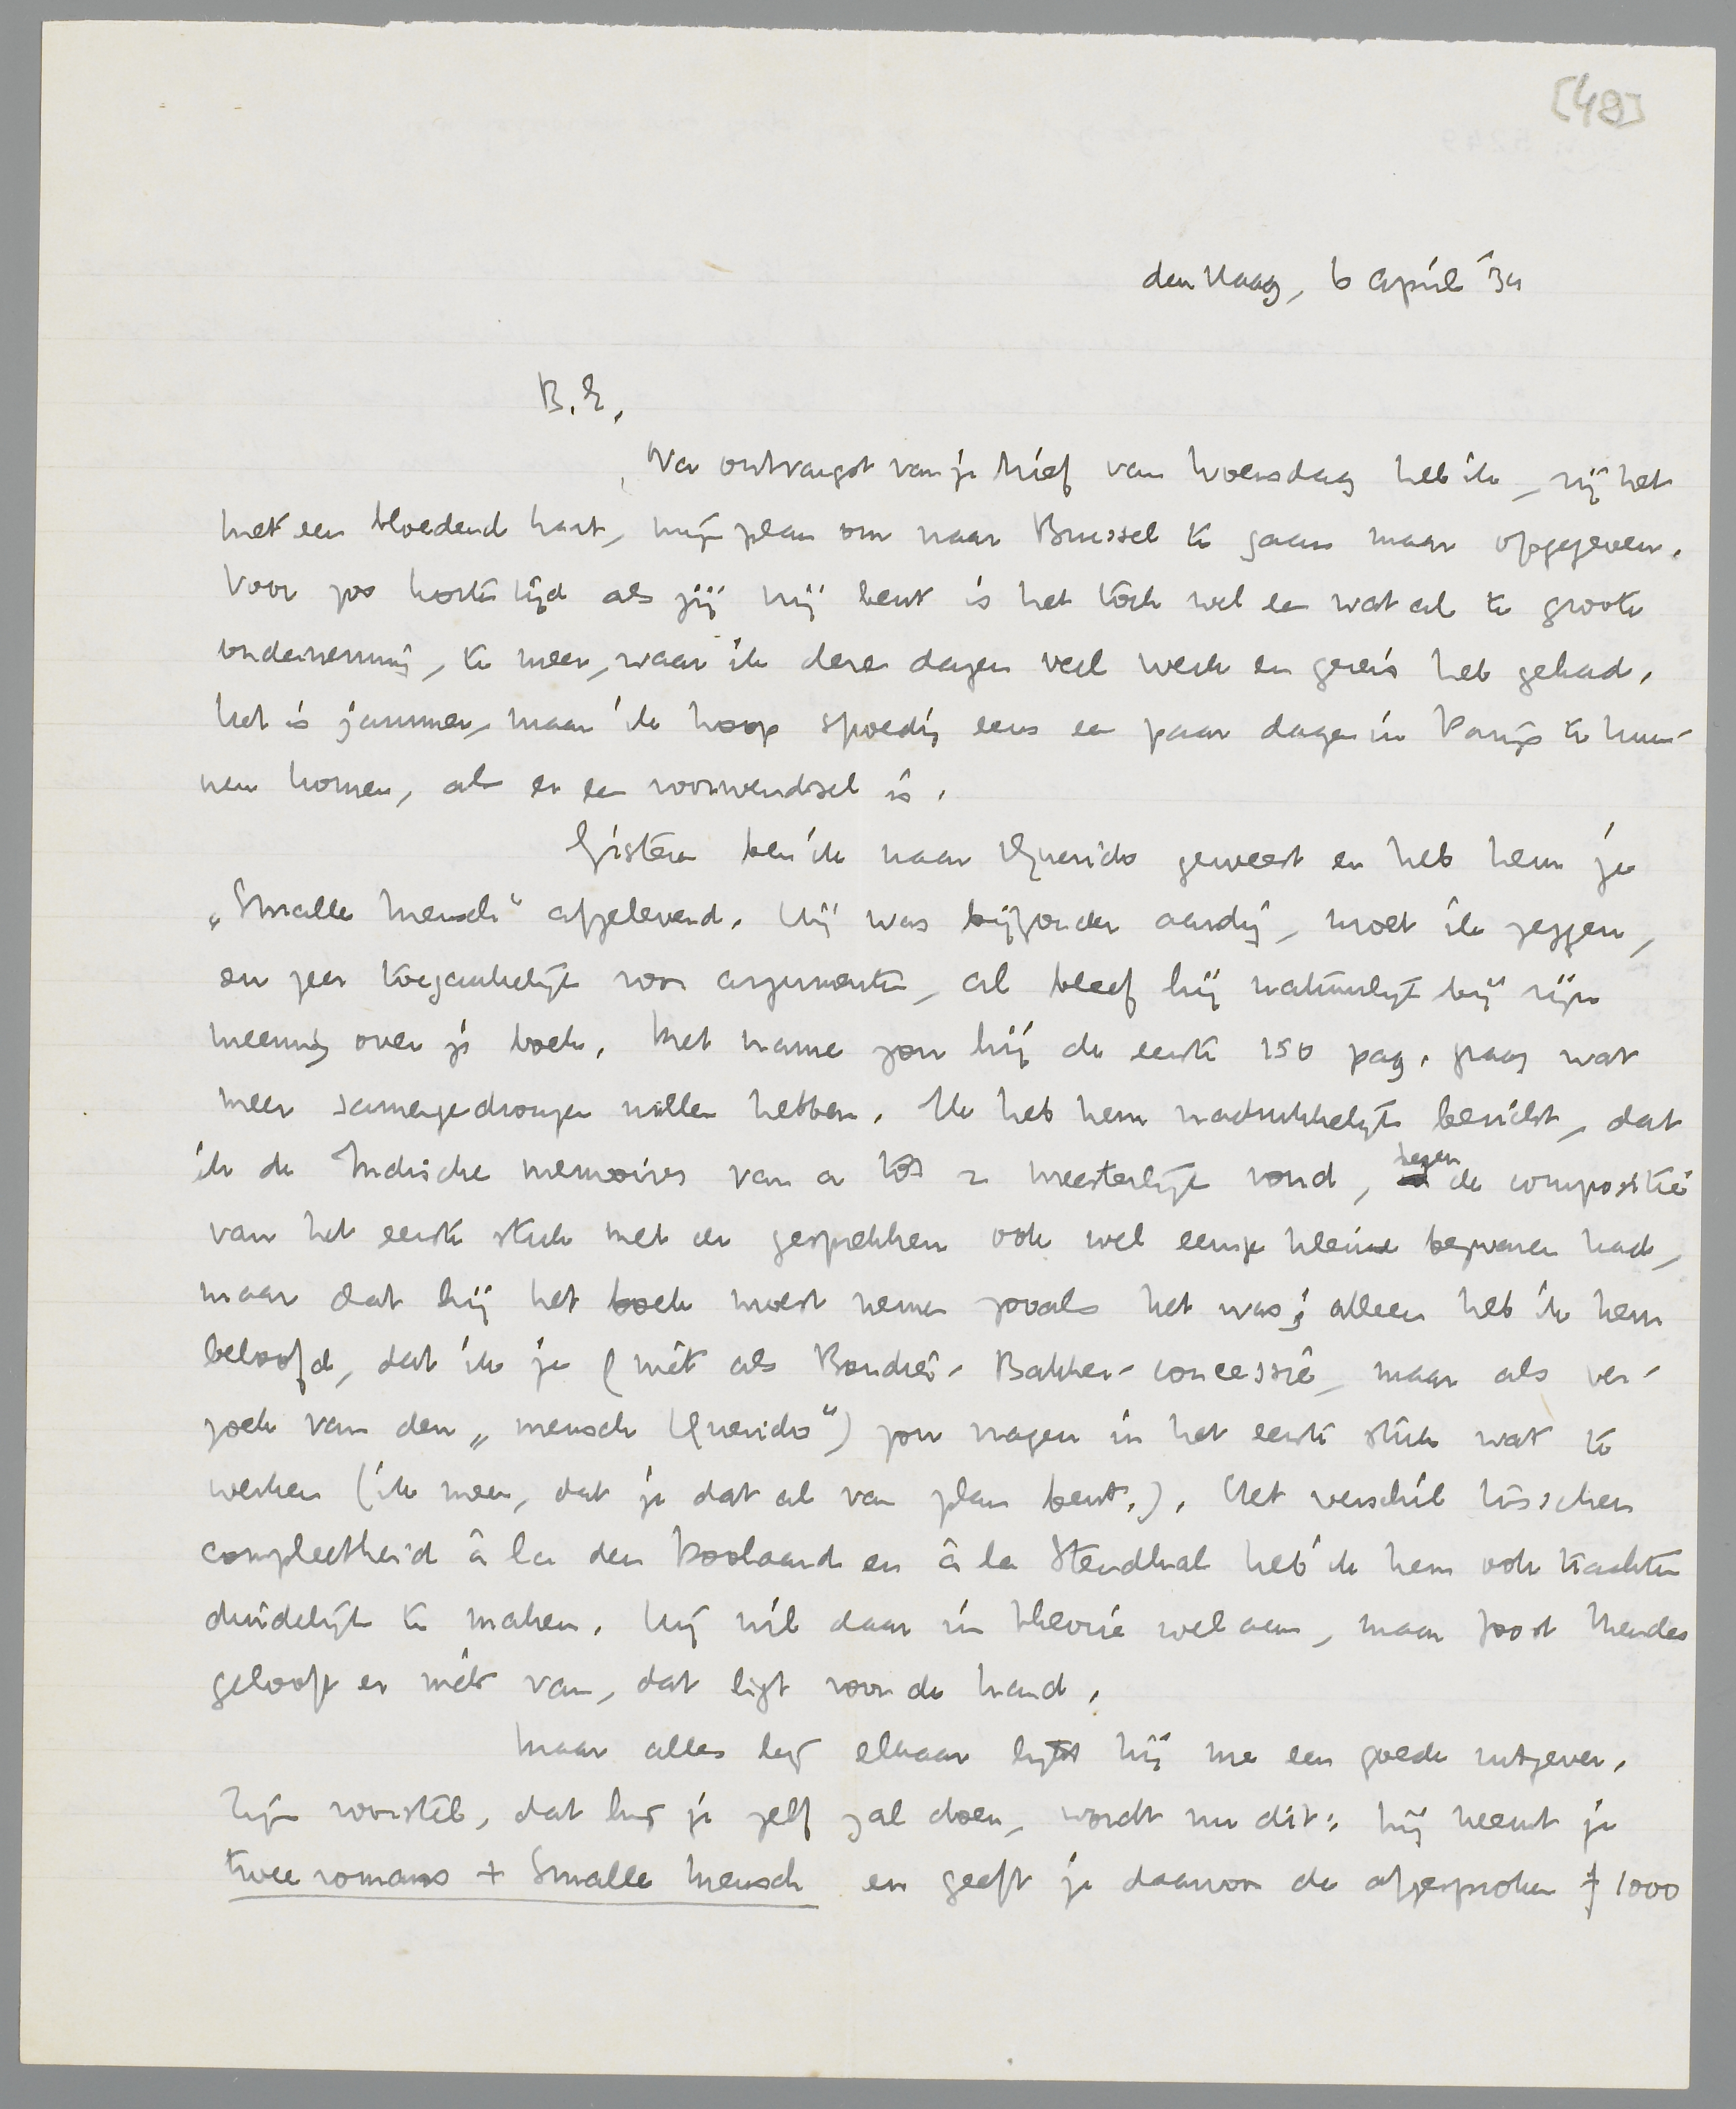 [49]
den Haag, 6 April '34
B.E.,
Na ontvangst van je brief van Woensdag heb ik, zij het
met een bloedend hart, mijn plan om naar Brussel te gaan maar opgegeven.
Voor zoo korten tijd als jij vrij bent is het toch wel een wat al te groote
onderneming, te meer, waar ik deze dagen veel werk en gereis heb gehad.
Het is jammer, maar ik hoop spoedig eens een paar dagen in Parijs te kun-
nen komen, als er een voorwendsel is.
Gisteren ben ik naar Querido geweest en heb hem je
„Smalle Mensch" afgeleverd. Hij was bijzonder aardig, moet ik zeggen,
en zeer toegankelijk voor argumenten, al bleef hij natuurlijk bij zijn
meening over je boek. Met name zou hij de eerste 150 pag. graag wat
meer samengedrongen willen hebben. Ik heb hem nadrukkelijk bericht, dat
ik de Indische memoires van a tot z meesterlijk vond, tegen de compositie
van het eerste stuk met de gesprekken ook wel eenige kleine bezwaren had,
maar dat hij het boek moest nemen zooals het was; alleen heb ik hem
beloofd, dat ik je (niet als Bondier-Bakker-concessie, maar als ver-
zoek van den „mensch Querido") zou vragen in het eerste stuk wat te
werken (ik meen, dat je dat al van plan bent.). Het verschil tusschen
compleetheid à la den Doolaard en à la Stendhal heb ik hem ook trachten
duidelijk te maken. Hij wil daar in theorie wel aan, maar Joost Mendes
gelooft er niets van, dat ligt voor de hand.
Maar alles bij elkaar lijkt hij me een goede uitgever.
Zijn voorstel, dat hij je zelf zal doen, wordt nu dit: hij neemt je
twee romans + Smalle Mensch en geeft je daarvoor de afgesproken f 1000